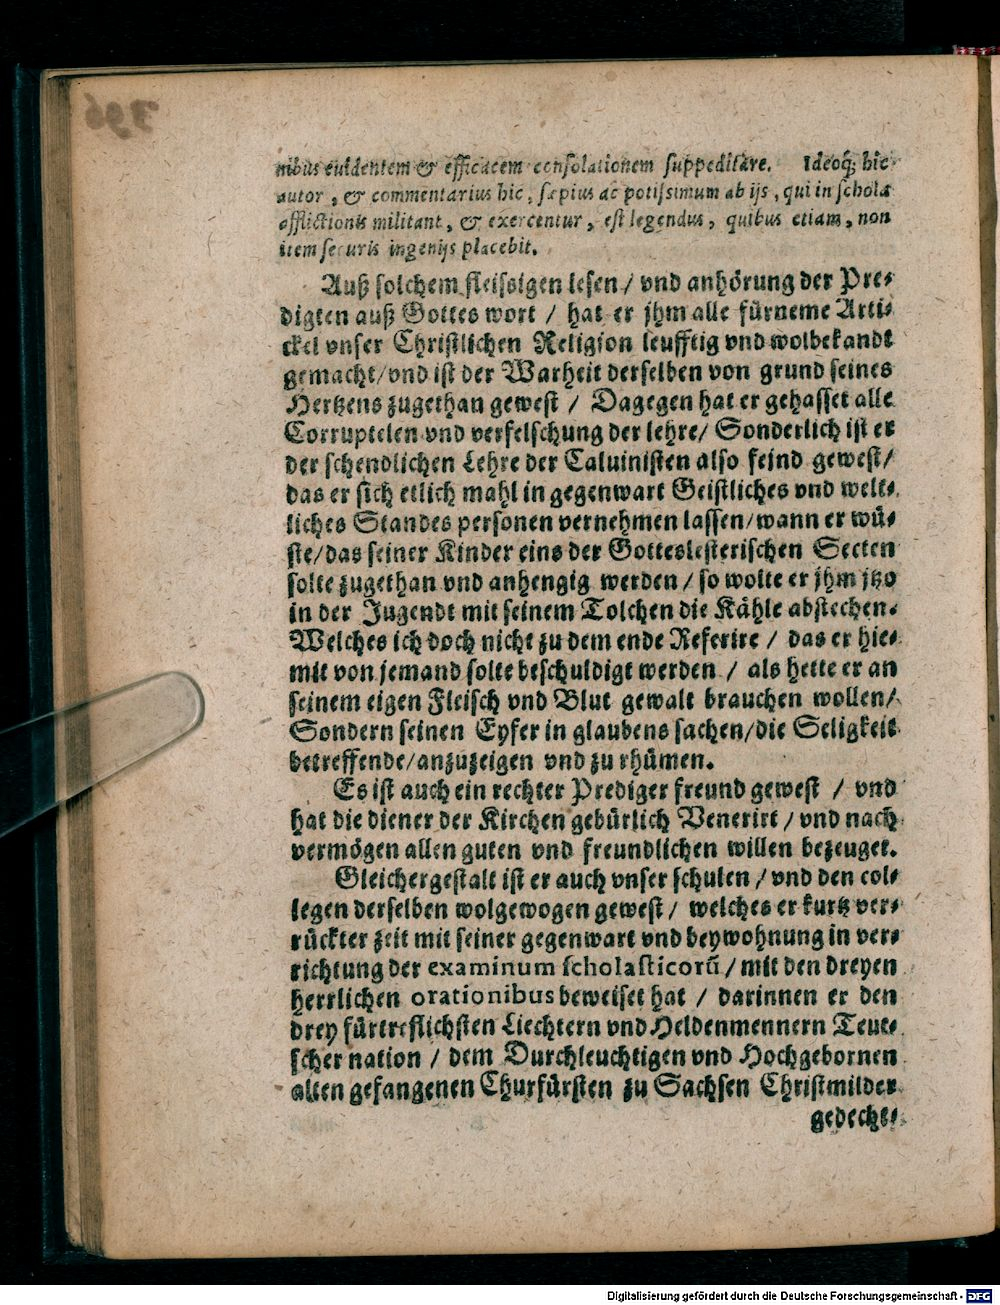 nibus euidentem & efficacem consolationem suppeditare. Ideoq; hic
autor, & commentarius hic, sæpius ac potissimum ab ijs, qui in schola
afflictionis militant, & exercentur, est legendus, quibus etiam, non
item securis ingenijs placebit.
Auß solchem fleissigen lesen / vnd anhörung der Pre⸗
digten auß Gottes wort / hat er jhm alle fürneme Arti⸗
ckel vnser Christlichen Religion leufftig vnd wolbekandt
gemacht/vnd ist der Warheit derselben von grund seines
Hertzens zugethan gewest / Dagegen hat er gehasset alle
Corruptelen vnd verfelschung der lehre/ Sonderlich ist er
der schendlichen Lehre der Caluinisten also feind gewest/
das er sich etlich mahl in gegenwart Geistliches vnd welt⸗
liches Standes personen vernehmen lassen/wann er wü⸗
ste/das seiner Kinder eins der Gotteslesterischen Secten
solte zugethan vnd anhengig werden / so wolte er jhm jtzo
in der Jugendt mit seinem Tolchen die Kähle abstechen.
Welches ich doch nicht zu dem ende Referire / das er hie⸗
mit von jemand solte beschuldigt werden / als hette er an
seinem eigen Fleisch vnd Blut gewalt brauchen wollen/
Sondern seinen Eyfer in glaubens sachen/die Seligkeit
betreffende/anzuzeigen vnd zu rhümen.
Es ist auch ein rechter Prediger freund gewest / vnd
hat die diener der Kirchen gebürlich Venerirt / vnd nach
vermögen allen guten vnd freundlichen willen bezeuget.
Gleichergestalt ist er auch vnser schulen / vnd den col⸗
legen derselben wolgewogen gewest / welches er kurtz ver⸗
rückter zeit mit seiner gegenwart vnd beywohnung in ver⸗
richtung der examinum scholasticorū / mit den dreyen
herrlichen orationibus beweiset hat / darinnen er den
drey fürtreflichsten Liechtern vnd Heldenmennern Teut⸗
scher nation / dem Durchleuchtigen vnd Hochgebornen
alten gefangenen Churfürsten zu Sachsen Christmilder
gedecht⸗
Digitalisierung gefördert durch die Deutsche Forschungsgemeinschaft - DFG